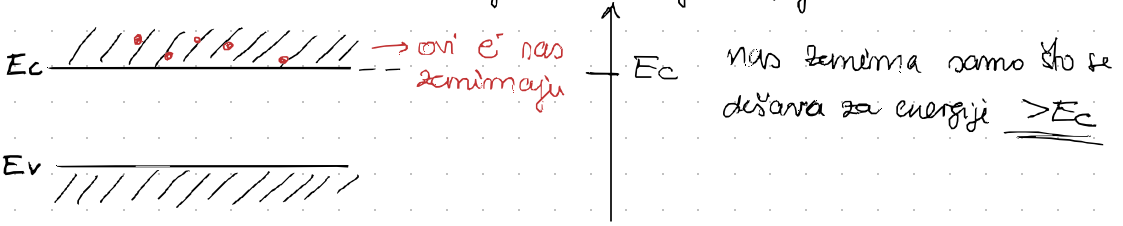 Ec
→ ovi e⁻ nas
zanimaju
Ev
Ec
nas zanima samo što se
dešava za energiji >Ec